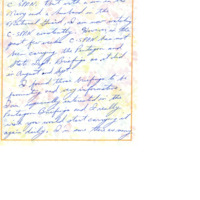 C-SPAN. But with a son in the
Navy and a husband in the
National Guard, I am now watching
C-SPAN constantly. However in the
past few weeks C-SPAN has not
been carrying the Pentagon and
State Dept. Briefings as it did
in August and Sept.
I found these Briefings to be
fascinating and very informative.
I am especially interested in the
Pentagon Briefings and I really
wish you would start carrying it
again daily. I am sure this is every